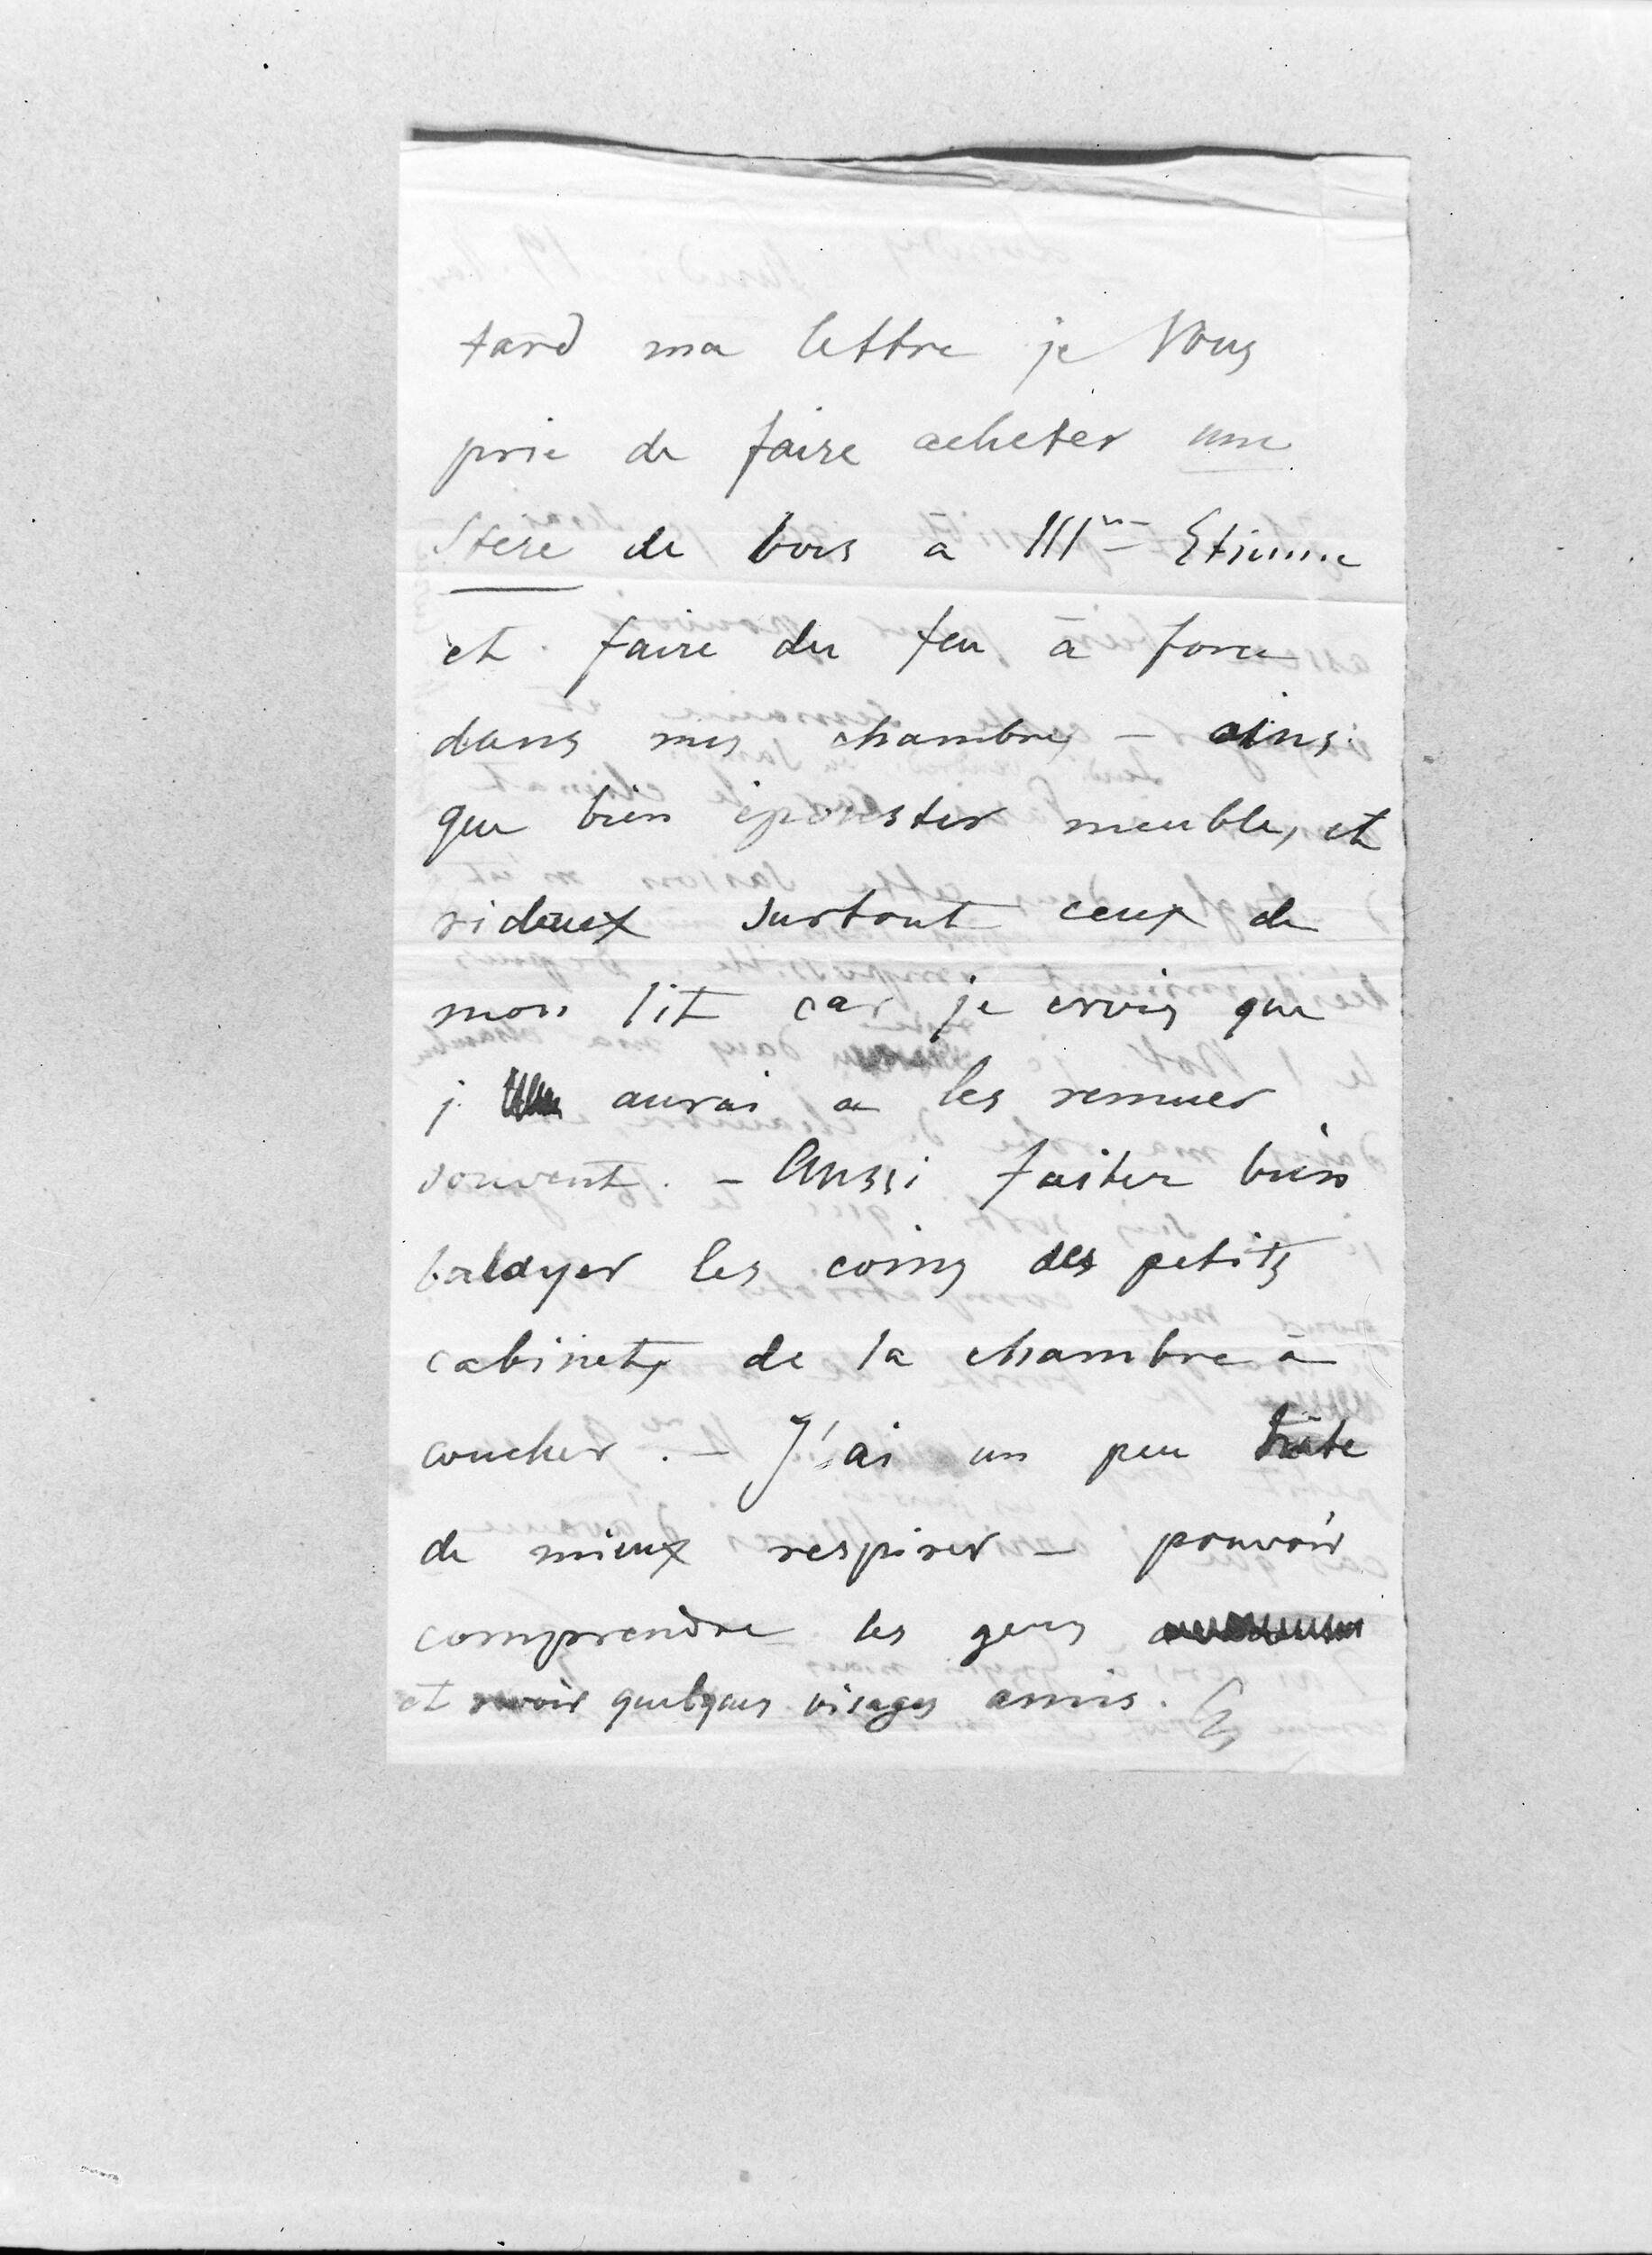 tard ma lettre je Vous
prie de faire acheter une
Stere de bois à Mme Etienne
et faire du feu à force
dans mes chambres – ainsi
que bien épouster meubles et
rideaux surtout ceux de
mon lit car je crois que
j' aurai a les remuer
souvent. – Aussi faiter bien
balayer les coins des petits
cabinets de la chambre à
coucher. – J'ai un peu hâte
de mieux respirer – pouvoir
comprendre les gens
et revoir quelques visages amis.